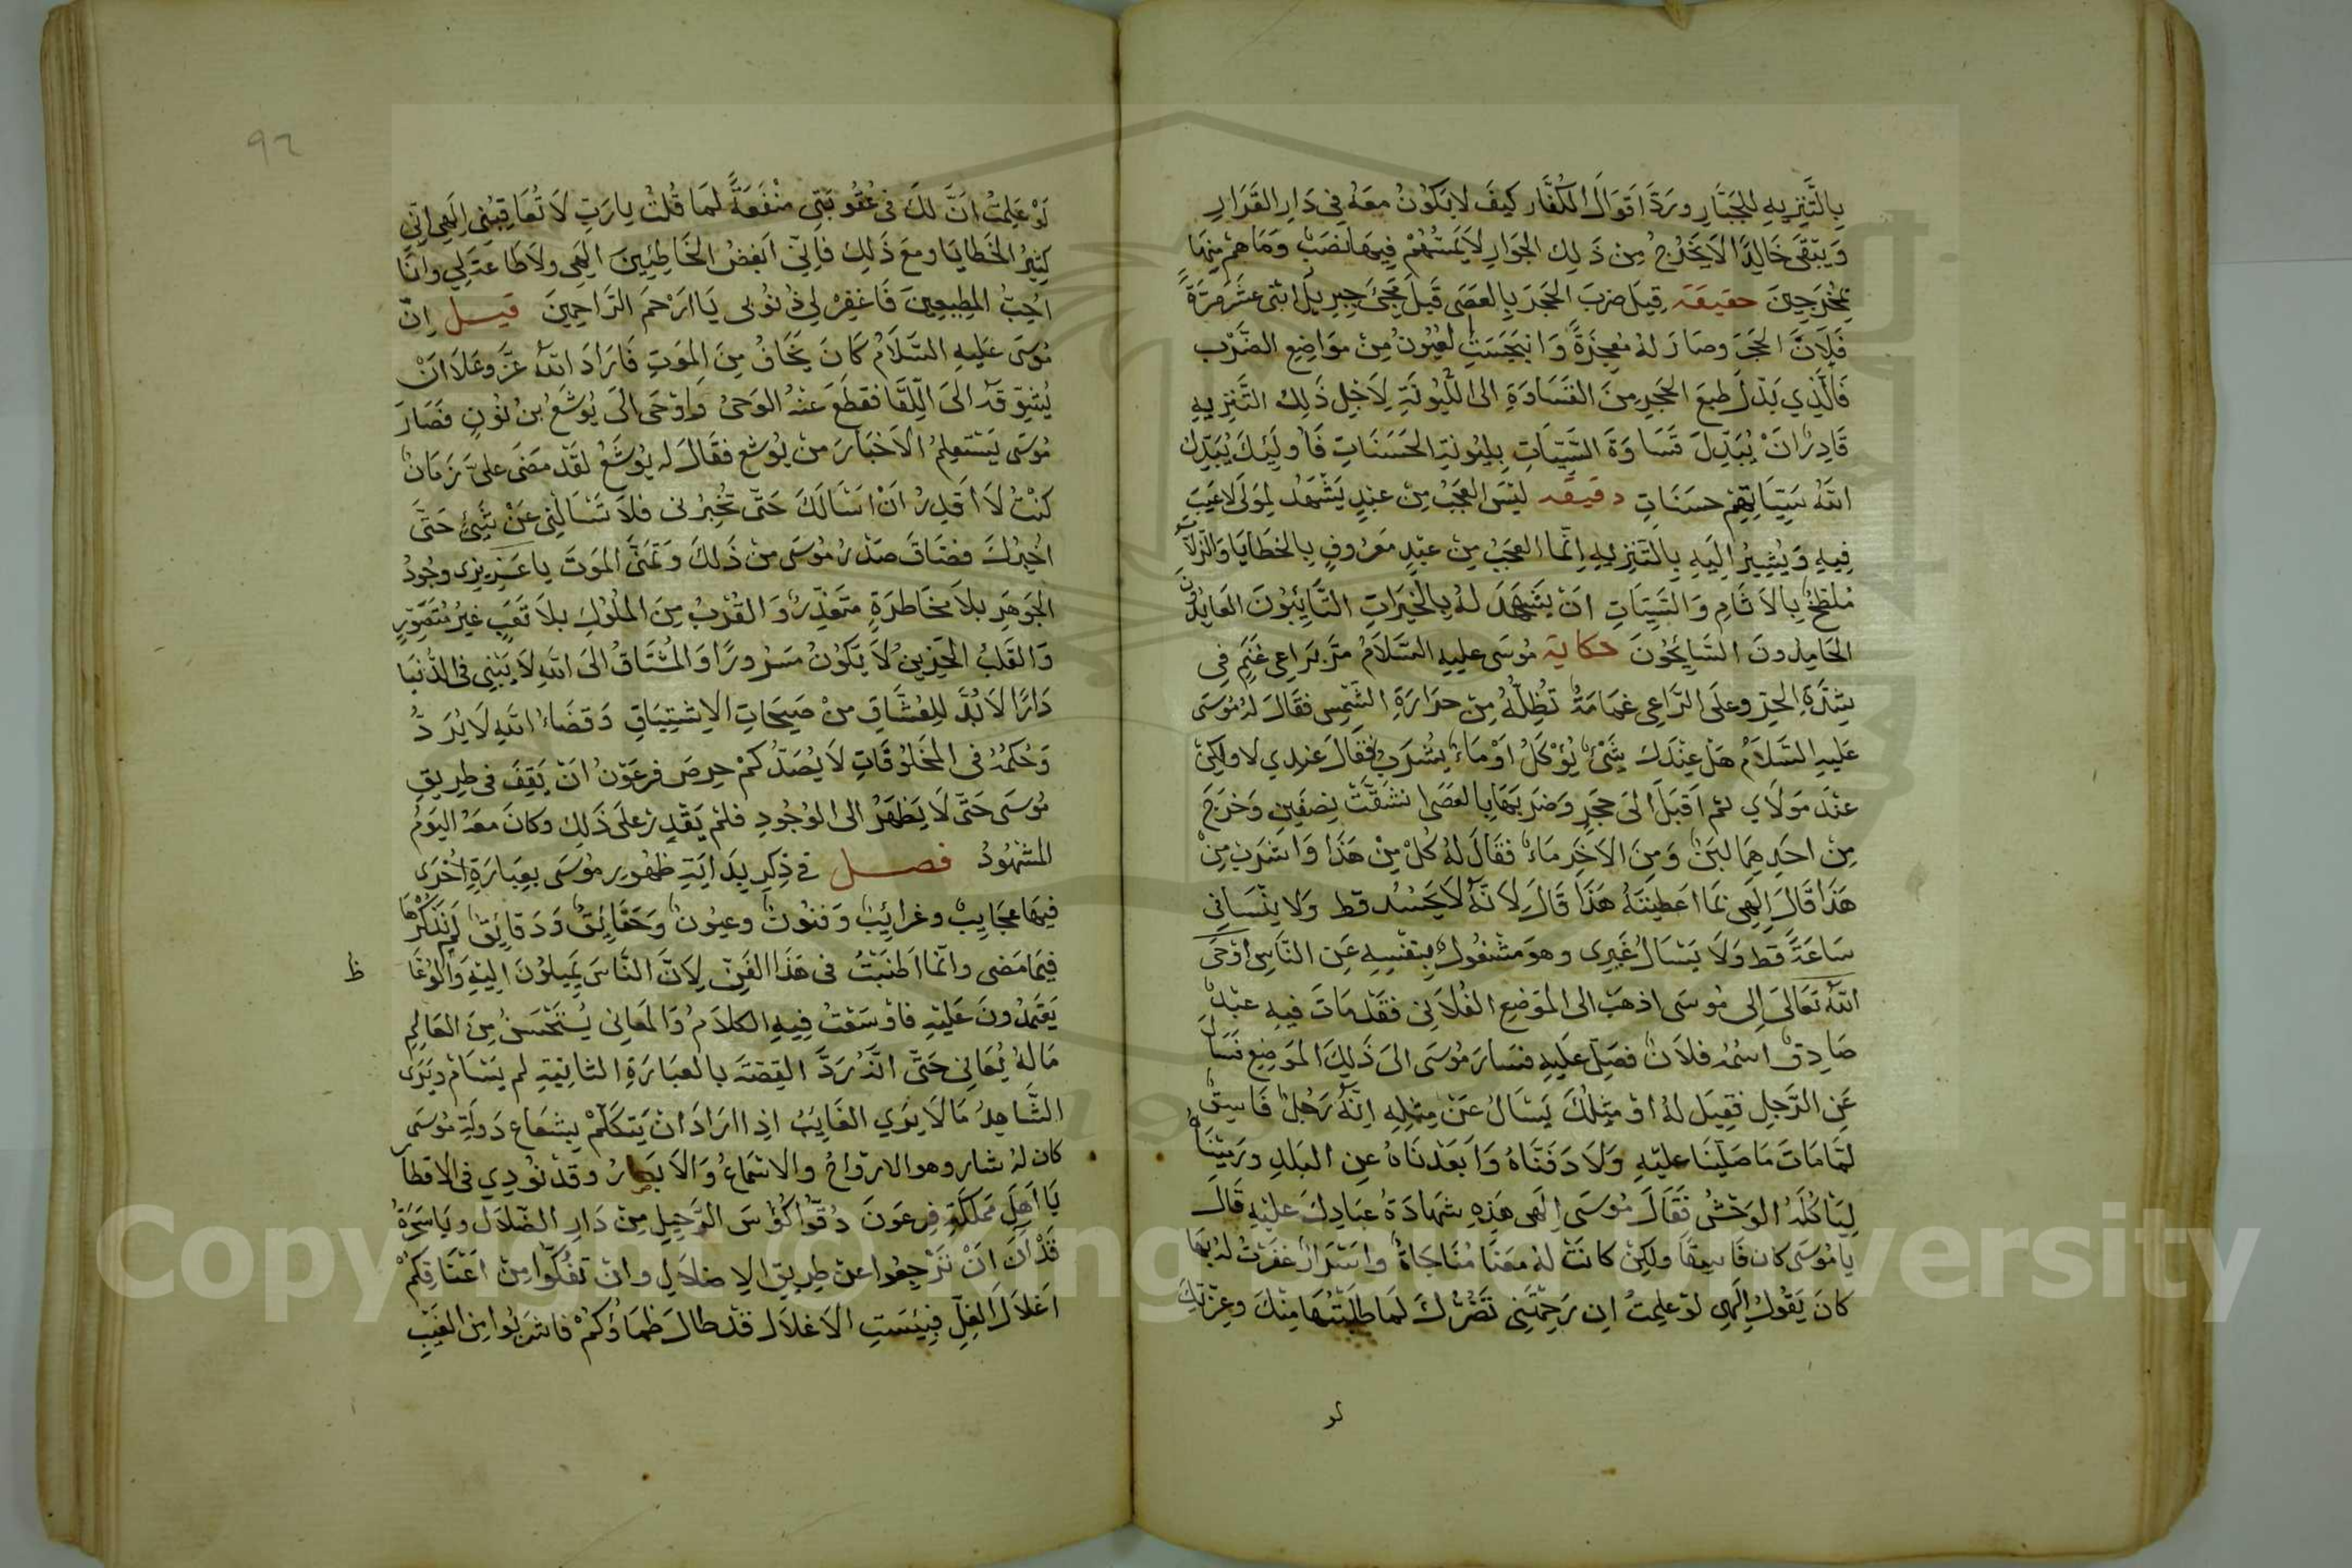 بِالتَّنْزِيهِ لِلْجَبَّارِ وَرَدَّ اَقْوَالَ الْكُفَّارِ كَيْفَ لَا يَكُوْنُ مَعَهُ فِي دَارِ الْقَرَارِ
وَيَبْقَى خَالِدًا لَا يَخْرُجُ مِنْ ذَلِكَ الْجَوَارِ لَا يَمَسُّهُمْ فِيهَا نَصَبٌ وَمَا هُمْ مِنْهَا
بِمُخْرَجِينَ حقيقة قِيلَ ضَرَبَ الْحَجَرَ بِالْعَصَى قَبْلَ مَجِيْءِ جِبْرِيلَ اثْنَى عَشَرَ مَرَّةً
فَلَانَ الْحَجَرُ وصَارَ لَهُ مُعْجِزَةً وَانْبَجَسَتِ الْعُيُونُ مِنْ مَوَاضِعِ الضَّرْبِ
فَالَّذِي بَدَّلَ طَبْعَ الْحَجَرِ مِنَ الْقَسَاوَةِ اِلَى اللُّيُونَةِ لِاَجْلِ ذَلِكَ التَّنْزِيهِ
قَادِرٌ اَنْ يُبَدِّلَ قَسَاوَةَ السَّيِّاتِ بِلُيُونَةِ الْحَسَنَاتِ فَاولَئِكَ يُبَدِّلُ
اللهُ سَيِّاتِهِمْ حَسَنَاتٍ دقيقة لَيْسَ الْعَجَبُ مِنْ عَبْدٍ يَشْهَدُ لِمَوْلًى لَا عَيْبَ
فِيهِ وَيُشِيرُ اِلَيْهِ بِالتَّنْزِيهِ اِنَّمَا الْعَجَبُ مِنْ عَبْدٍ مَعْرُوفٍ بِالْخَطَايَا وَالزَّلَّاتِ
مُلَطَّخٌ بِالْاَثَامِ وَالسَّيِّاتِ اَنْ يَشْهَدَ لَهُ بِالْخَيْرَاتِ التَّائِبُونَ الْعَابِدُونَ
الْحَامِدُونَ السَّائِحُونَ حكاية مُوسَى عليهِ السَّلَامُ مَرَّ بِرَاعِي غَنَمٍ فِي
شِدَّةِ الْحَرِّ وعَلَى الرَّاعِي غَمَامَةٌ تُظِلُّهُ مِنْ حَرَارَةِ الشَّمْسِ فَقَالَ لَهُ مُوسَى
عَلَيهِ السَّلَامُ هَلْ عِنْدَكَ شَيْءٌ يُؤْكَلُ اَوْ مَاءٌ يُشْرَبُ فَقَالَ عِنْدِي لَا ولَكِنْ
عِنْدَ مَوْلَايَ ثم اَقْبَلَ اِلَى حَجَرٍ وَضَرَبَهَا بِالْعَصَى انْشَقَّتْ نِصْفَيْنِ وَخَرَجَ
مِنْ احَدِهِمَا لَبَنٌ وَمِنَ الْاَخَرِ مَاءٌ فَقَالَ لَهُ كُلْ مِنْ هَذَا وَاشْرَبْ مِنْ
هَذَا قَالَ اِلَهِي بِمَا اعَطَيْتَهُ هَذَا قَالَ لِاَنَّهُ لَا يَحْسُدُ قط وَلَا يَنْسَانِي
سَاعَةً قط وَلَا يَسْالُ غَيْرِي وهوَ مَشْغُولٌ بِنَفْسِهِ عَنِ النَّاسِ اَوْحَى
اللهُ تَعَالَى اِلى مُوسَى اذهَبْ الى الْمَوْضِعِ الْفُلَانِي فَقَدْ مَاتَ فِيهِ عَبْدٌ
صَادِقٌ اسْمُهُ فُلَانٌ فصَلِّ عَلَيهِ فَسَارَ مُوسَى الى ذَلِكَ الْمَوْضِعِ فَسَالَ
عَنِ الرَّجُلِ فقِيلَ لَهُ اوَ مِثْلُكَ يَسْالُ عَنْ مِثْلِهِ اِنَّهُ رَجُلٌ فَاسِقٌ
لَمَّا مَاتَ مَا صَلَّيْنَا عليْهِ وَلَا دَفَنَّاهُ وَاَبْعَدْنَاهُ عَنِ الْبَلَدِ وَرَمَيْنَاهُ
لِيَاكُلَهُ الْوَحْشُ فَقَالَ مُوسَى اِلَهِي هَذِهِ شَهَادَةُ عِبَادِكَ عليْهِ قَالَ
يا مُوسَى كان فَاسِقًا ولكِنْ كَانَتْ لَهُ مَعَنَا مُنَاجَاةٌ واسْرَارٌ غَفَرْتُ لَهُ بِهَا
كانَ يَقُولُ اِلَهِي لَوْ عَلِمْتُ ان رَحْمَتَنِي تَضُرُّكَ لَمَا طَلَبْتُهَا مِنْكَ وعِزَّتِكَ
لو
٩٢
لَوْ عَلِمْتُ اَنَّ لَكَ في عُقُوبَتِي مَنْفَعَةً لَمَا قُلْتُ يا رَبِّ لَا تُعَاقِبْنِي اِلَهِي اِنِّي
كَثِيرُ الْخَطَايَا ومَعَ ذَلِكَ فَاِنِّي اَبْغُضُ الْخَاطِئِينَ اِلَهِي ولَا طَاعَةَ لِي وانَا
اُحِبُّ الْمُطِيعِينَ فَاغْفِرْ لِي ذُنُوبِي يَا اَرْحَمَ الرَّاحِمِينَ قيل اِنَّ
مُوسَى عَلَيْهِ السَّلَامُ كَانَ يَخَافُ مِنَ الْمَوْتِ فَارَادَ اللهُ عَزَّ وعَلَا اَنْ
يُشَوِّقَهُ اِلَى اللِّقَا فَقَطَعَ عَنْهُ الْوَحْيُ وَاوْحَى اِلَى يُوشَعُ بْنُ نُوْنٍ فَصَارَ
مُوسَى يَسْتَعْلِمُ الْاَخْبَارَ مِنْ يُوشع فَقَالَ لَه يُوشَعُ لَقَدْ مَضَى عَلَيَّ زَمَانٌ
كُنْتُ لَا اَقْدِرُ اَنْ اسْالَكَ حَتَّى تُخْبِرُنِي فَلَا تَسْالْنِي عَنْ شَيْءٍ حَتَّى
اُخْبِرُكَ فضَاقَ صَدْرُ مُوسَى مِنْ ذَلِكَ وَتَمَنَّى الْمَوْتَ يا عَزِيزِي وجُودُ
الْجَوْهَرِ بِلَا مُخَاطَرَةٍ مُتَعَذِّرٌ وَالْقُرْبُ مِنَ الْمُلُوكِ بِلَا تَعَبٍ غَيْرُ مُتَصَوِّرٍ
وَالْقَلْبُ الْحَزِينُ لَا يَكُوْنُ مَسْرُورًا وَالْمُشْتَاقُ اِلَى اللهِ لَا يَبْنِي فِى الدُّنْيَا
دَارًا لَا بُدَّ لِلْعُشَّاقِ مِنْ صَيْحَاتِ الِاشْتِيَاقِ وَقَضَاءُ اللهِ لَا يُرَدُّ
وَحُكْمُهُ فى الْمَخْلُوقَاتِ لَا يُصَدُّ كمْ حَرِصَ فِرْعَوْنُ اَنْ يَقِفَ في طَرِيقِ
مُوسَى حَتَّى لَا يَظْهَرُ الى الْوُجُودِ فلَمْ يَقْدِرْ عَلَى ذَلِكَ وكَانَ مَعَهُ الْيَوْمُ
الْمَشْهُودُ فصل في ذِكْرِ بِدَايَةِ ظُهُورِ مُوسَى بِعِبَارَةٍ اُخْرَى
فِيهَا عَجَايِبٌ وغَرَايِبٌ وَفُنُونٌ وعيُونٌ وَحَقَايِقٌ وَدَقَايِقٌ لَمْ نَذْكُرْهَا
فِيمَا مَضَى وانَّمَا اَطْنَبْتُ في هَذَا الْفَنِّ لِاَنَّ النَّاسَ يَمِيلُوْنَ اِلَيْهِ وَالْوُعَّا
ظ
يَعْتَمِدُونَ عَلَيْهِ فاوْسَعْتُ فِيهِ الكَلَامُ وَالْمَعَانِي يُسْتَحْسَنُ مِنَ الْعَالِمِ
مَا لَهُ يُعَانِي حَتَّى انَّهُ رَدَّ الْقِصَّةَ بِالْعِبَارَةِ الثَّانِيَةِ لَم يَسْامْ ويَرَى
الشَّاهِدُ مَا لَا يَرَى الْغَايِبُ اِذا ارَادَ انْ يَتَكَلَّمْ بِشُعَاعِ دَوْلَةِ مُوسَى
كان لهُ نثار وهو الارْوَاحُ والاسْمَاعُ وَالاَبْصَارُ وقدْ نُودِيَ في الاقْطَار
يَا اَهْلَ مَمْلَكَةِ فِرْعَونَ ذُوقُوا كُؤُسَ الرَّحِيلِ مِنْ دَارِ الضَّلَالِ ويَا سَحَرَةُ
قَدْ آنَ اَنْ تَرْجِعُوا عَنْ طَرِيقِ الِاضْلَالِ وانْ تَفُكُّوا مِنْ اَعْنَاقِكُمْ
اَغْلَالَ الْغِلِّ فَبِئْسَتِ الْاَغْلَالُ قَدْ طَالَ ظَمَاؤُكُمْ فاشْرَبُوا مِنَ الْغَيْبِ
Copyright © King Saud University